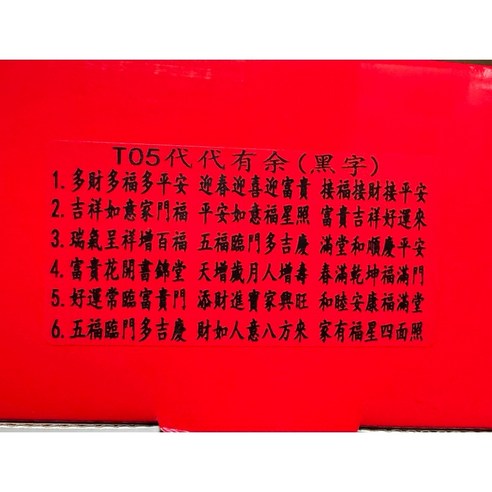 T05代代有余(黑字)
1.多財多福多平安 迎春迎喜迎富貴 接福接財接平安
2.吉祥如意家門福 平安如意福星照 富貴吉祥好運來
3.瑞氣呈祥增百福 五福臨門多吉慶 滿堂和順慶平安
4.富貴花開書錦堂 天增歲月人增壽 春滿乾坤福滿門
5.好運常臨富貴門 添財進寶家興旺 和睦安康福滿堂
6.五福臨門多吉慶 財如人意八方來 家有福星四面照